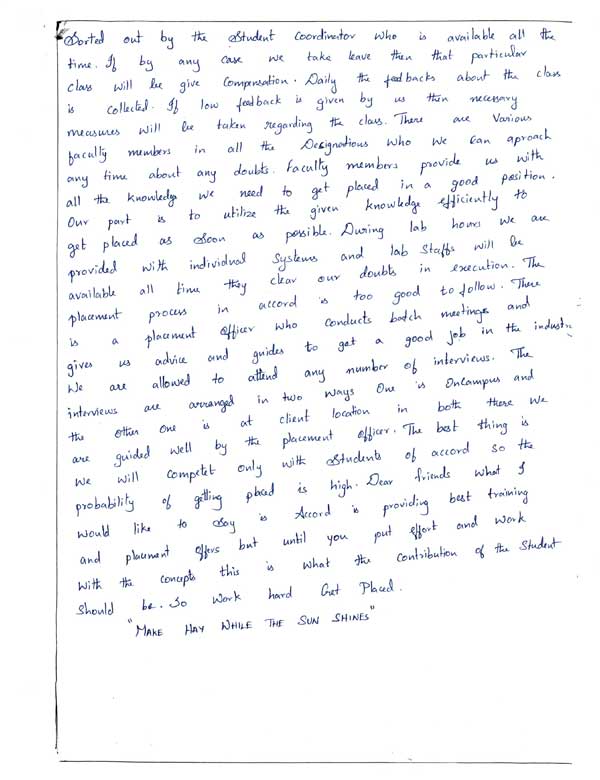 Sorted out by the Student Coordinator who is available all the
time. If by any case we take leave then that particular
class will be give Compensation. Daily the feedbacks about the class
is collected. If low feedback is given by us then necessary
measures will be taken regarding the class. There are Various
faculty members in all the Designations who we can aproach
any time about any doubts. faculty members provide us with
all the knowledge we need to get placed in a good position.
Our part is to utilize the given knowledge efficiently to
get placed as soon as possible. During lab hours we are
provided with individual Systems and lab Staffs will be
available all time they clear our doubts in execution. The
placement process in accord is too good to follow. There
is a placement officer who conducts batch meetings and
gives us advice and guides to get a good job in the industry
We are allowed to attend any number of interviews. The
interviews are arranged in two ways One is OnCampus and
the other one is at client location in both there we
are guided well by the placement officer. The best thing is
we will competet only with Students of accord so the
probability of getting placed is high. Dear friends what I
would like to say is Accord is providing best training
and placement offers but until you put effort and work
with the concepts this is what the contribution of the Student
Should be. So Work hard Get Placed.
"MAKE HAY WHILE THE SUN SHINES"